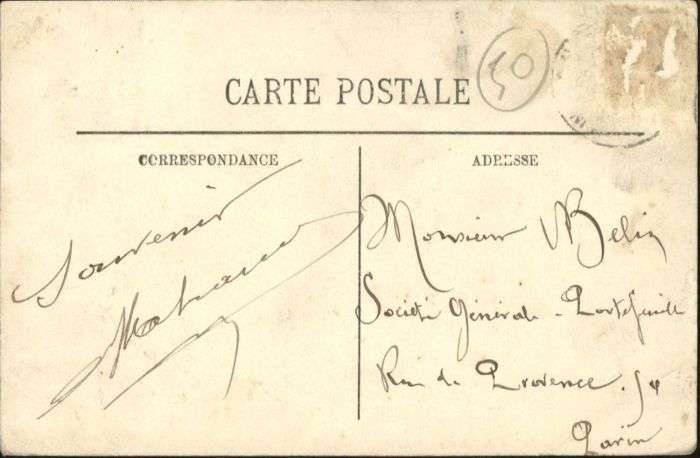 CARTE POSTALE
50
CORRESPONDANCE
Souvenir
ADRESSE
Monsieur Belin
Société Générale - Portefeuille
Rue de Provence. 54
Paris